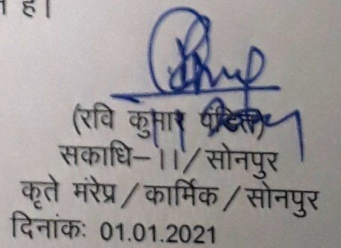 है।
(रवि कुमार पंडित)
सकाधि-।।/सोनपुर
कृते मंरेप्र/कार्मिक/सोनपुर
दिनांकः 01.01.2021